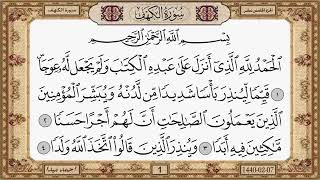 سورة الكهف
سُورَةُ الكَهْفِ
بِسْمِ اللَّهِ الرَّحْمَٰنِ الرَّحِيمِ
الْحَمْدُ لِلَّهِ الَّذِي أَنْزَلَ عَلَىٰ عَبْدِهِ الْكِتَابَ وَلَمْ يَجْعَلْ لَهُ عِوَجًا
١ قَيِّمًا لِيُنْذِرَ بَأْسًا شَدِيدًا مِنْ لَدُنْهُ وَيُبَشِّرَ الْمُؤْمِنِينَ
الَّذِينَ يَعْمَلُونَ الصَّالِحَاتِ أَنَّ لَهُمْ أَجْرًا حَسَنًا ٢
مَاكِثِينَ فِيهِ أَبَدًا ٣ وَيُنْذِرَ الَّذِينَ قَالُوا اتَّخَذَ اللَّهُ وَلَدًا ٤
1
1440-02-07